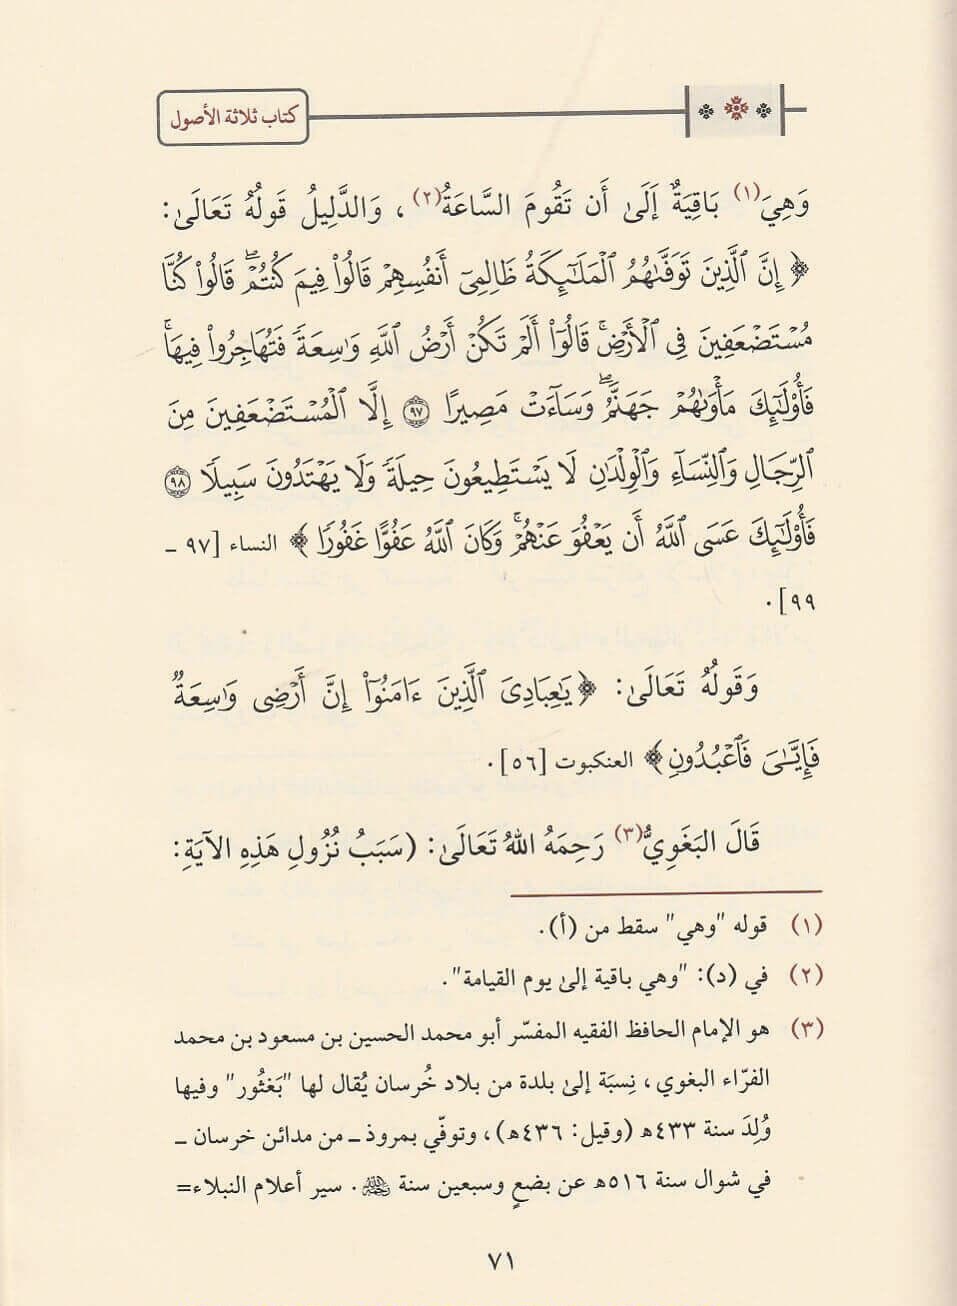 كتاب ثلاثة الأصول
وَهِيَ(١) بَاقِيَةٌ إَلَىٰ أَن تَقُومَ السَّاعَةُ(٢) ، وَالدَّلِيلُ قَولُهُ تَعَالَىٰ:
﴿ إِنَّ ٱلَّذِينَ تَوَفَّىٰهُمُ ٱلْمَلَـٰٓئِكَةُ ظَالِمِىٓ أَنفُسِهِمْ قَالُوا۟ فِيمَ كُنتُمْ ۖ قَالُوا۟ كُنَّا
مُسْتَضْعَفِينَ فِى ٱلْأَرْضِ ۚ قَالُوٓا۟ أَلَمْ تَكُنْ أَرْضُ ٱللَّهِ وَٰسِعَةً فَتُهَاجِرُوا۟ فِيهَا ۚ
فَأُو۟لَـٰٓئِكَ مَأْوَىٰهُمْ جَهَنَّمُ ۖ وَسَآءَتْ مَصِيرًا ٩٧ إِلَّا ٱلْمُسْتَضْعَفِينَ مِنَ
ٱلرِّجَالِ وَٱلنِّسَآءِ وَٱلْوِلْدَٰنِ لَا يَسْتَطِيعُونَ حِيلَةً وَلَا يَهْتَدُونَ سَبِيلًا ٩٨
فَأُو۟لَـٰٓئِكَ عَسَى ٱللَّهُ أَن يَعْفُوَ عَنْهُمْ ۚ وَكَانَ ٱللَّهُ عَفُوًّا غَفُورًا ﴾ النساء [٩٧ ـ
٩٩].
وَقَولُهُ تَعَالَىٰ: ﴿ يَـٰعِبَادِىَ ٱلَّذِينَ ءَامَنُوٓا۟ إِنَّ أَرْضِى وَٰسِعَةٌ
فَإِيَّـٰىَ فَٱعْبُدُونِ ﴾ العنكبوت [٥٦].
قَالَ البَغَوِيُّ(٣) رَحِمَهُ اللهُ تَعَالَىٰ: (سَبَبُ نُزُولِ هَذِهِ الآيَةِ:
(١) قوله "وهي" سقط من (أ).
(٢) في (د): "وهي باقية إلىٰ يوم القيامة".
(٣) هو الإمام الحافظ الفقيه المفسّر أبو محمد الحسين بن مسعود بن محمد
الفرّاء البغوي ، نِسبَة إلىٰ بلدة من بلاد خُرسان يُقال لها "بَغثُور" وفيها
وُلِدَ سنة ٤٣٣ﻫ (وقيل: ٤٣٦ﻫ)، وتوفّي بمروذ ـ من مدائن خرسان ـ
في شوال سنة ٥١٦ﻫ عن بضعٍ وسبعين سنة ﵀. سير أعلام النبلاء=
٧١